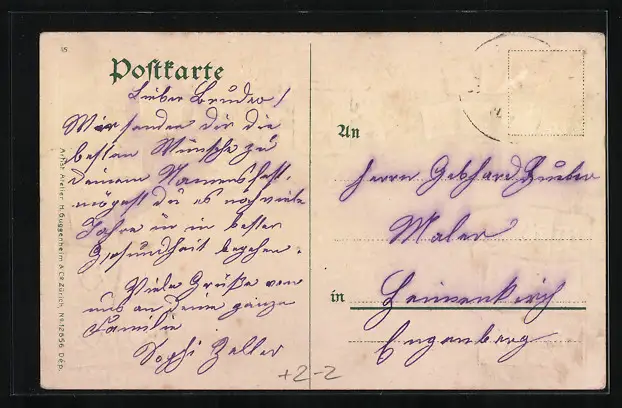 15
Postkarte
Lieber Bruder!
Wir senden dir die
besten Wünsche zu
deinem Namensfest,
mögest du es noch viele
Jahre in bester
Gesundheit begehen.
Viele Grüße von
uns an deine ganze
Familie
Sophi Zeller
Artist. Atelier H. Guggenheim & Co. Zürich, No. 12656 Dép.
An
Herrn Gebhard
Maler
in Heimenkirch
Engenberg
+2-2